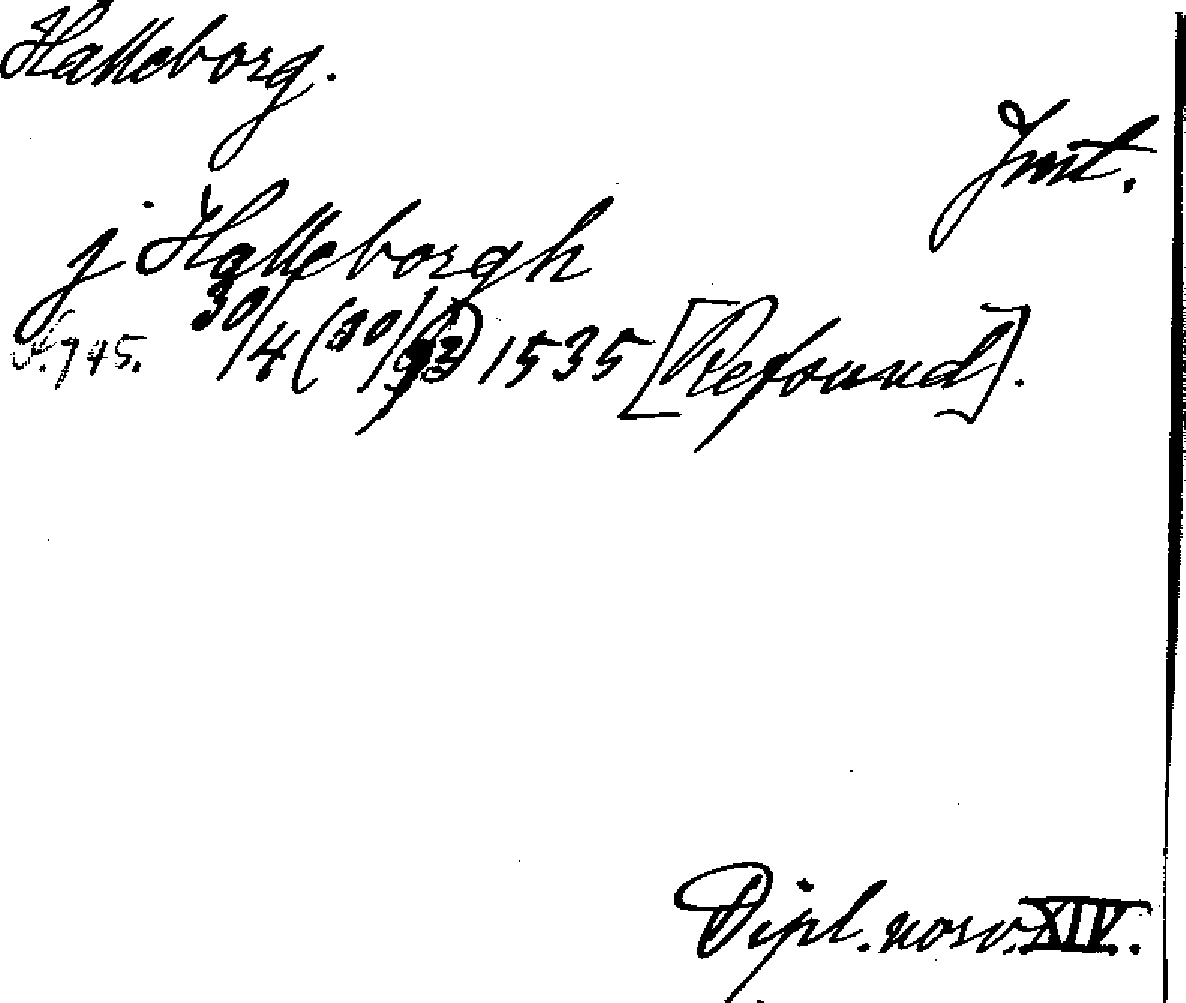 Halleborg.
Jmt.
j Halleborgh
s. 745. 30/4 (30/12) 1535 [Refsund].
Dipl. norv. XIV.